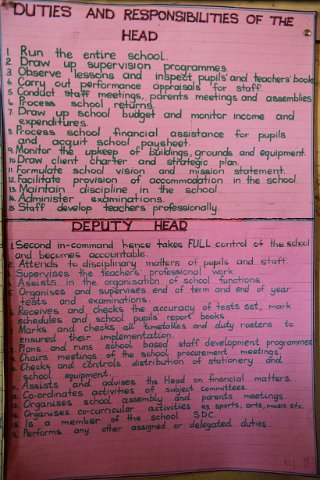 DUTIES AND RESPONSIBILITIES OF THE
HEAD
1. Run the entire school.
2. Draw up supervision programmes
3. Observe lessons and inspect pupils' and teachers' books
4. Carry out performance appraisals for staff.
5. Conduct staff meetings, parents meetings and assemblies
6. Process school returns.
7. Draw up school budget and monitor income and
expenditures.
8. Process school financial assistance for pupils
and acquit school paysheet.
9. Monitor the upkeep of buildings, grounds and equipment.
10. Draw client charter and strategic plan.
11. Formulate school vision and mission statement.
12. Facilitate provision of accommodation in the school.
13. Maintain discipline in the school.
14. Administer examinations.
15. Staff develop teachers professionally.
DEPUTY HEAD
1. Second in-command hence takes FULL control of the school
and becomes accountable.
2. Attends to disciplinary matters of pupils and staff.
3. Supervises the teachers' professional work.
4. Assists in the organisation of school functions.
5. Organises and supervises end of term and end of year
tests and examinations.
6. Receives and checks the accuracy of tests set, mark
schedules and school pupils report books.
7. Marks and checks all timetables and duty rosters to
ensured their implementation.
8. Plans and runs school based staff development programmes
9. Chairs meetings of the school procurement meetings.
10. Checks and controls distribution of stationery and
school equipment.
11. Assists and advises the Head on financial matters.
12. Co-ordinates activities of subject committees.
13. Organises school assembly and parents meetings
14. Organises co-curricular activities eg sports, arts, music etc.
15. Is a member of the school SDC.
16. Performs any other assigned or delegated duties.